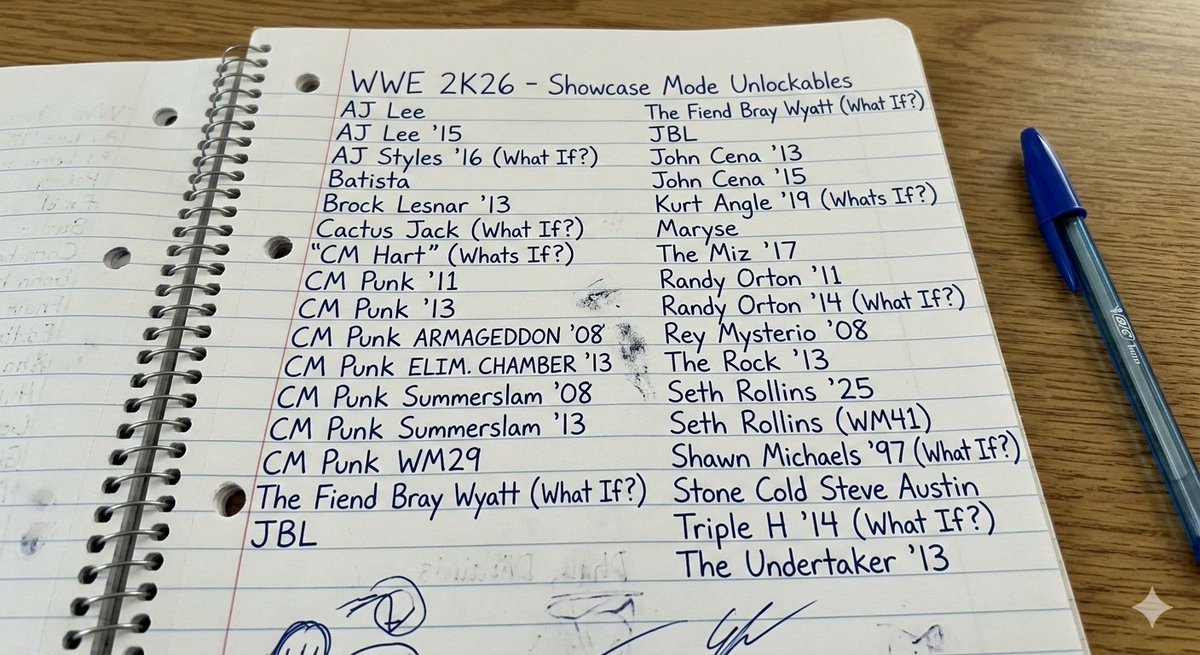 WWE 2K26 - Showcase Mode Unlockables
AJ Lee
AJ Lee '15
AJ Styles '16 (What If?)
Batista
Brock Lesnar '13
Cactus Jack (What If?)
"CM Hart" (Whats If?)
CM Punk '11
CM Punk '13
CM Punk ARMAGEDDON '08
CM Punk ELIM. CHAMBER '13
CM Punk Summerslam '08
CM Punk Summerslam '13
CM Punk WM29
The Fiend Bray Wyatt (What If?)
JBL
The Fiend Bray Wyatt (What If?)
JBL
John Cena '13
John Cena '15
Kurt Angle '19 (Whats If?)
Maryse
The Miz '17
Randy Orton '11
Randy Orton '14 (What If?)
Rey Mysterio '08
The Rock '13
Seth Rollins '25
Seth Rollins (WM41)
Shawn Michaels '97 (What If?)
Stone Cold Steve Austin
Triple H '14 (What If?)
The Undertaker '13